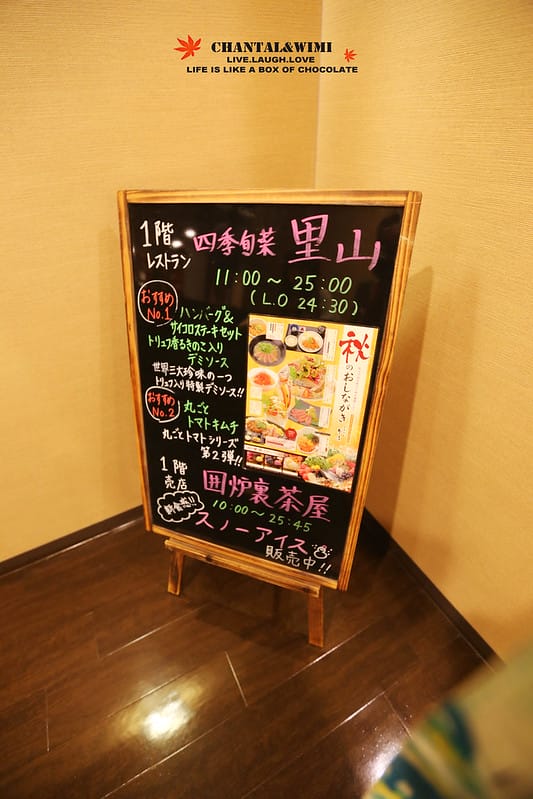 CHANTAL&WIMI
LIVE.LAUGH.LOVE
LIFE IS LIKE A BOX OF CHOCOLATE
1階
レストラン
四季旬菜 里山
11:00〜25:00
(L.O 24:30)
おすすめ
No.1
ハンバーグ&
サイコロステーキセット
トリュフ香るきのこ入り
デミソース
世界三大珍味の一つ
トリュフ入り特製デミソース!!
おすすめ
No.2
丸ごと
トマトキムチ
丸ごとトマトシリーズ
第2弾!!
秋
のおしながき
1階
売店
囲炉裏茶屋
10:00〜25:45
スノーアイス
販売中!!